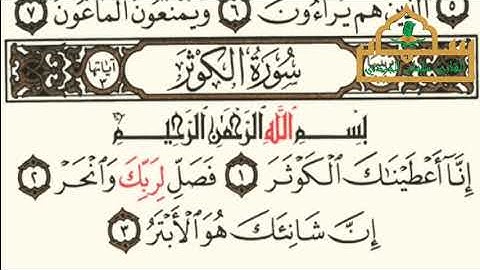 ٱلَّذِينَ هُمْ يُرَآءُونَ ٦ وَيَمْنَعُونَ ٱلْمَاعُونَ ٧
سُورَةُ الكَوْثَر آياتها ٣
بِسْمِ ٱللَّهِ ٱلرَّحْمَٰنِ ٱلرَّحِيمِ
إِنَّآ أَعْطَيْنَٰكَ ٱلْكَوْثَرَ ١ فَصَلِّ لِرَبِّكَ وَٱنْحَرْ ٢
إِنَّ شَانِئَكَ هُوَ ٱلْأَبْتَرُ ٣